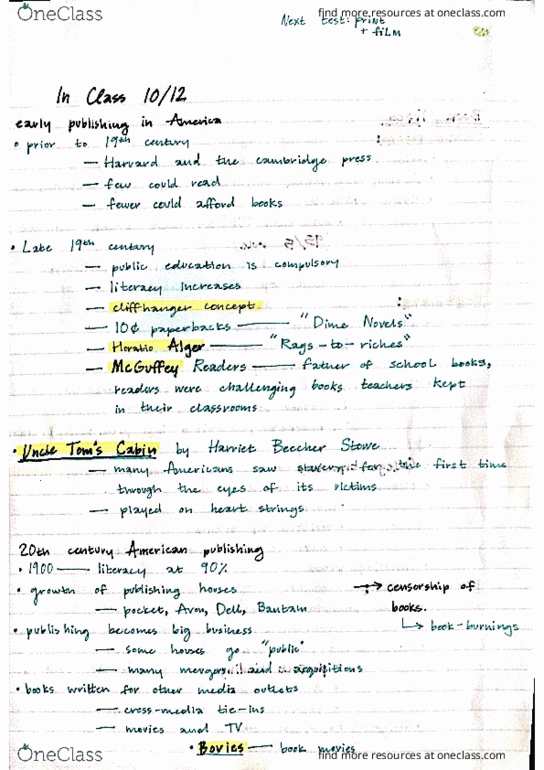 OneClass
find more resources at oneclass.com
Next test: print
+ film
In Class 10/12
early publishing in America
• prior to 19th century
— Harvard and the cambridge press
— few could read
— fewer could afford books
• Late 19th century
— public education is compulsory
— literacy increases
— cliffhanger concept
— 10¢ paperbacks — "Dime Novels"
— Horatio Alger — "Rags-to-riches"
— McGuffey Readers — father of school books,
readers were challenging books teachers kept
in their classrooms
• Uncle Tom's Cabin by Harriet Beecher Stowe
— many Americans saw slavery for the first time
through the eyes of its victims
— played on heart strings
20th century American publishing
• 1900 — literacy at 90%
• growth of publishing houses → censorship of
— pocket, Avon, Dell, Bantam books.
↳ book-burnings
• publishing becomes big business
— some houses go "public"
— many mergers and
• books written for other media outlets
— cross-media tie-ins
— movies and TV
• Bovies — book movies
OneClass
find more resources at oneclass.com